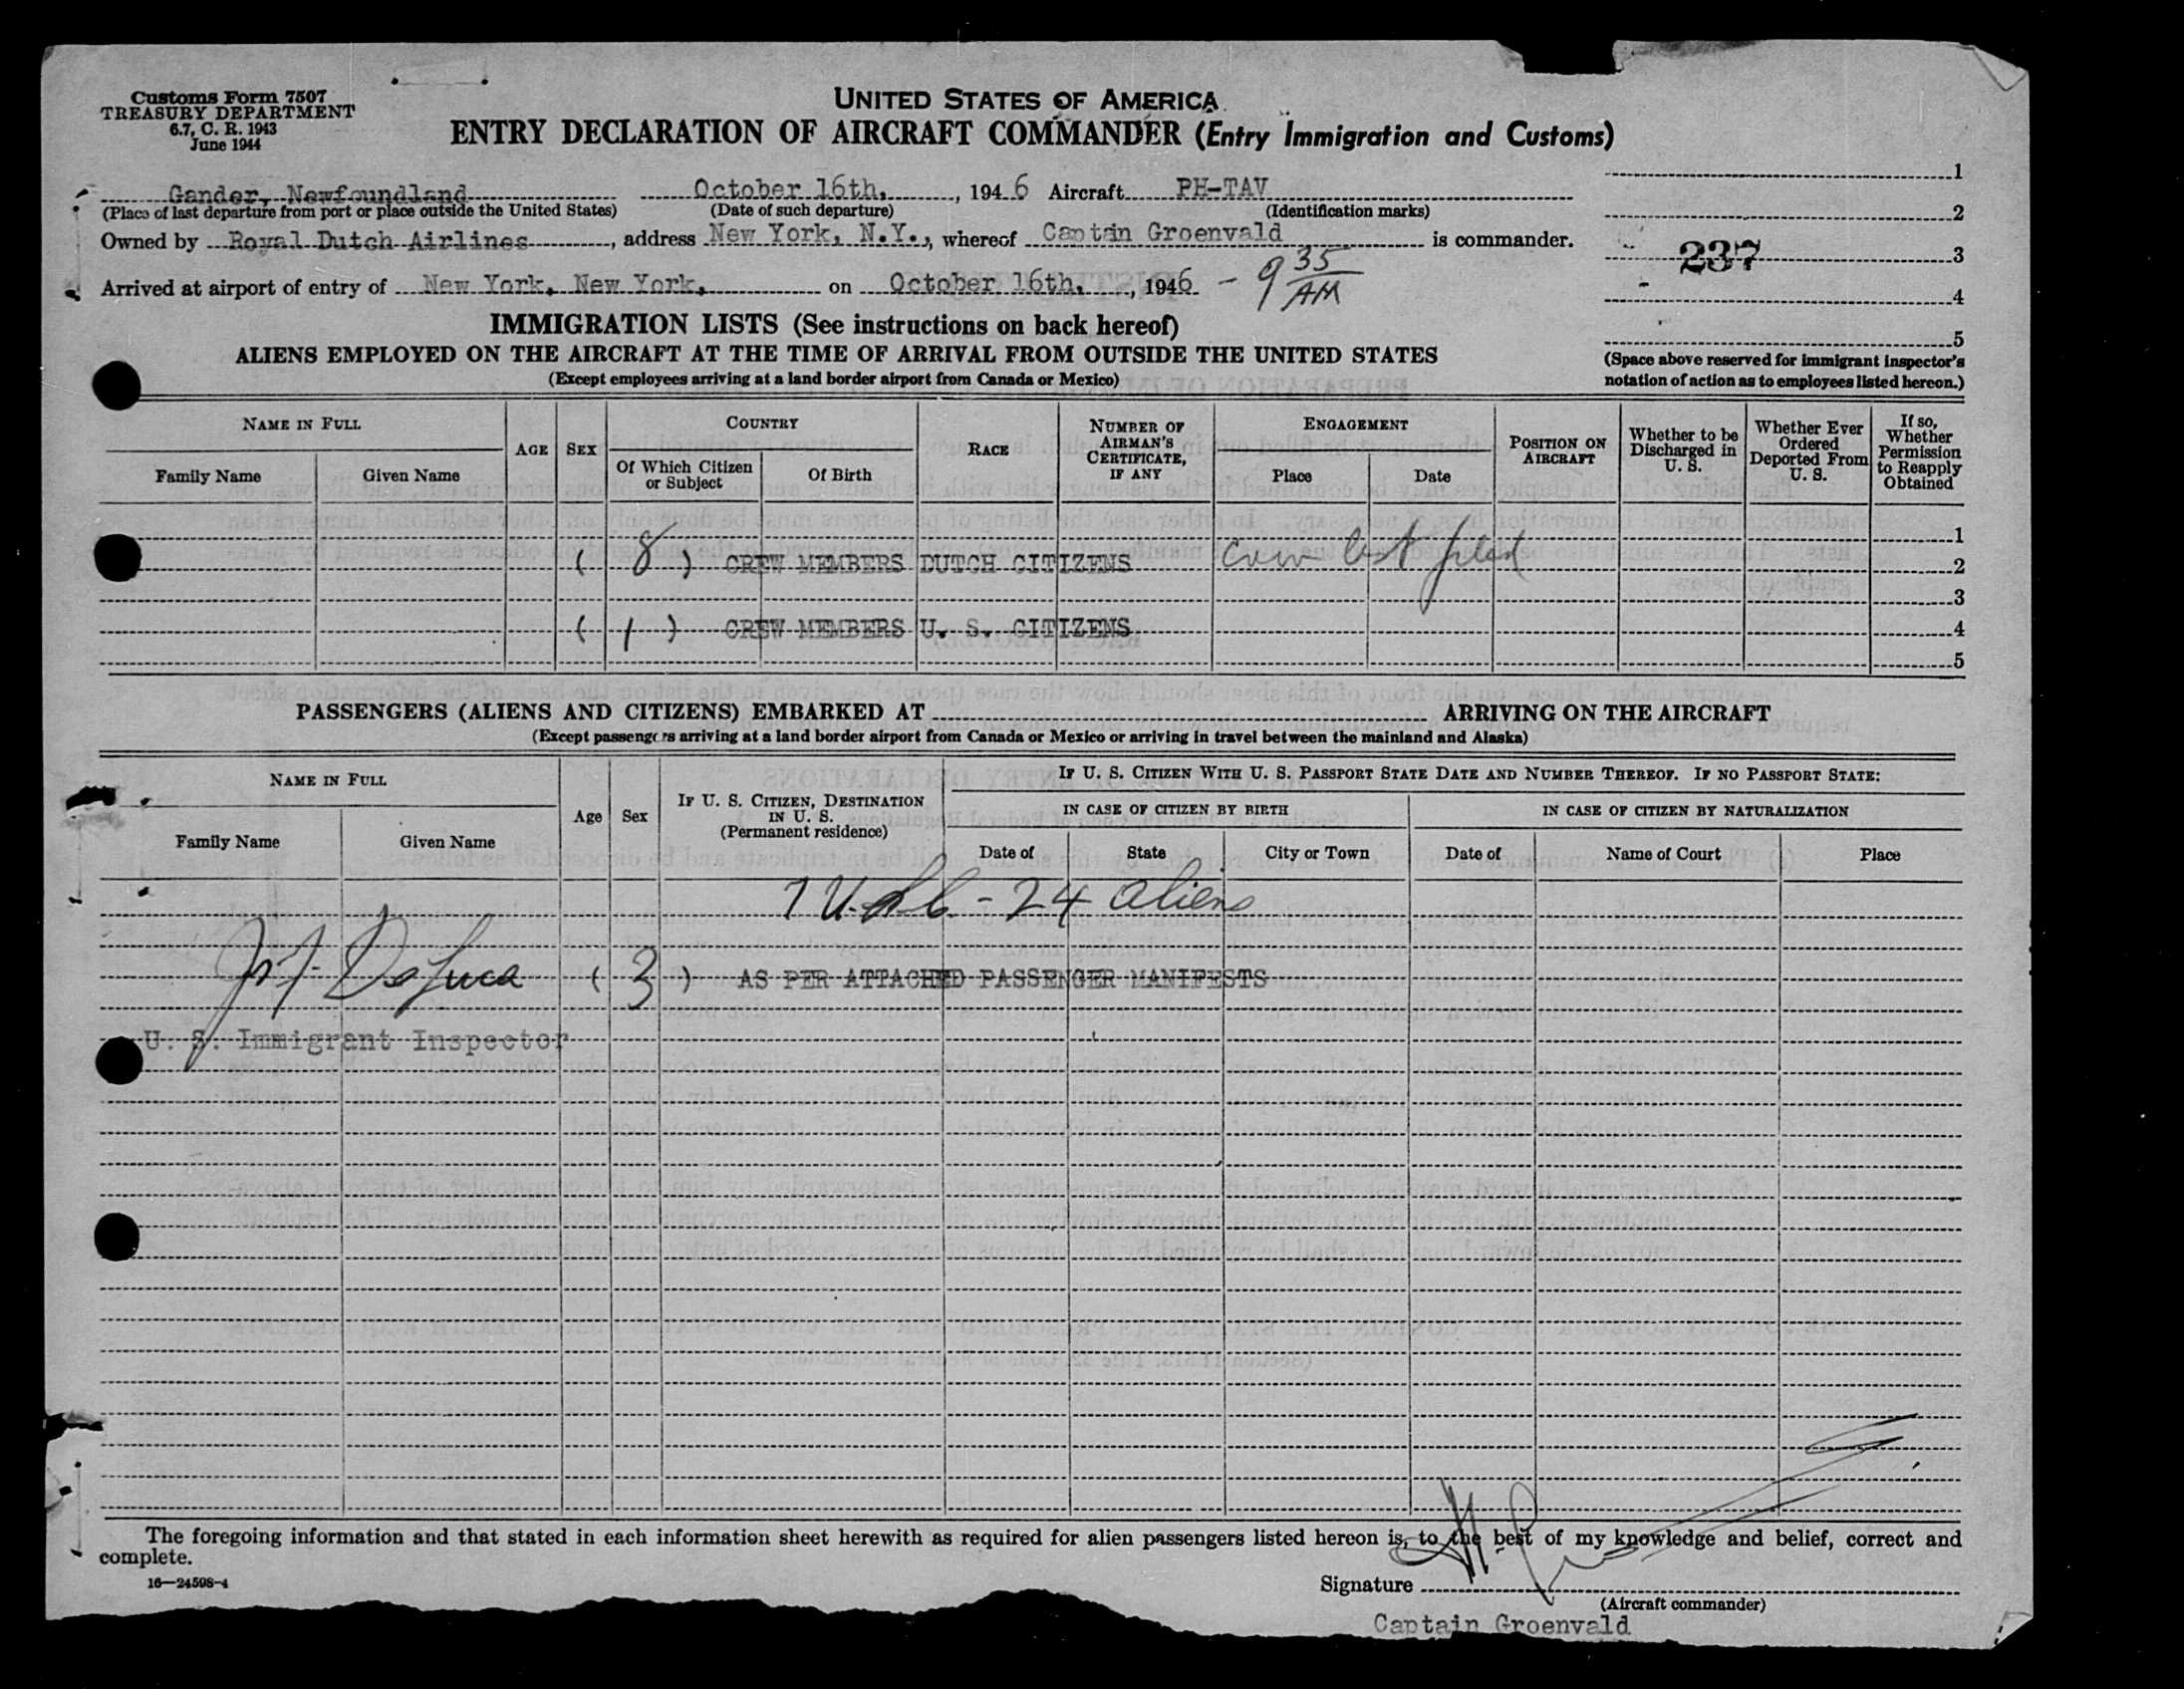 Customs Form 7507
TREASURY DEPARTMENT
6.7, C. R. 1943
June 1944
UNITED STATES OF AMERICA
ENTRY DECLARATION OF AIRCRAFT COMMANDER (Entry Immigration and Customs)
Gander, Newfoundland October 16th, , 1946 Aircraft PH-TAV
(Place of last departure from port or place outside the United States) (Date of such departure) (Identification marks)
Owned by Royal Dutch Airlines , address New York, N.Y., , whereof Captain Groenvald is commander.
Arrived at airport of entry of New York, New York, on October 16th, , 1946 - 9 35 AM
1
2
237 3
4
5
(Space above reserved for immigrant inspector's notation of action as to employees listed hereon.)
IMMIGRATION LISTS (See instructions on back hereof)
ALIENS EMPLOYED ON THE AIRCRAFT AT THE TIME OF ARRIVAL FROM OUTSIDE THE UNITED STATES
(Except employees arriving at a land border airport from Canada or Mexico)
NAME IN FULL
Family Name Given Name
AGE SEX
COUNTRY
Of Which Citizen or Subject Of Birth
RACE
NUMBER OF AIRMAN'S CERTIFICATE, IF ANY
ENGAGEMENT
Place Date
POSITION ON AIRCRAFT
Whether to be Discharged in U. S.
Whether Ever Ordered Deported From U. S.
If so, Whether Permission to Reapply Obtained
1
( 8 ) CREW MEMBERS DUTCH CITIZENS Crew list filed 2
3
( 1 ) CREW MEMBERS U. S. CITIZENS 4
5
PASSENGERS (ALIENS AND CITIZENS) EMBARKED AT ARRIVING ON THE AIRCRAFT
(Except passengers arriving at a land border airport from Canada or Mexico or arriving in travel between the mainland and Alaska)
NAME IN FULL
Family Name Given Name
Age Sex
IF U. S. CITIZEN, DESTINATION IN U. S.
(Permanent residence)
IF U. S. CITIZEN WITH U. S. PASSPORT STATE DATE AND NUMBER THEREOF. IF NO PASSPORT STATE:
IN CASE OF CITIZEN BY BIRTH IN CASE OF CITIZEN BY NATURALIZATION
Date of State City or Town Date of Name of Court Place
7 U.S.C. - 24 aliens
DeLuca ( 3 ) AS PER ATTACHED PASSENGER MANIFESTS
U. S. Immigrant Inspector
The foregoing information and that stated in each information sheet herewith as required for alien passengers listed hereon is, to the best of my knowledge and belief, correct and
complete.
16—24598-4
Signature
(Aircraft commander)
Captain Groenvald